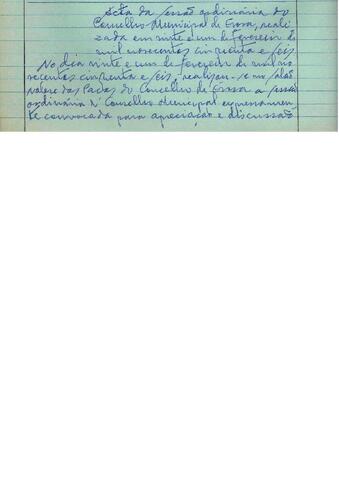 Acta da sessão ordinária do
Concelho Municipal de Évora, reali-
zada em vinte e um de fevereiro de
mil novecentos cincoenta e seis
No dia vinte e um de fevereiro de mil no-
vecentos cincoenta e seis, realizou-se no salão
nobre dos Paços do Concelho de Évora a sessão
ordinária do Concelho Municipal expressamen-
te convocada para apreciação e discussão